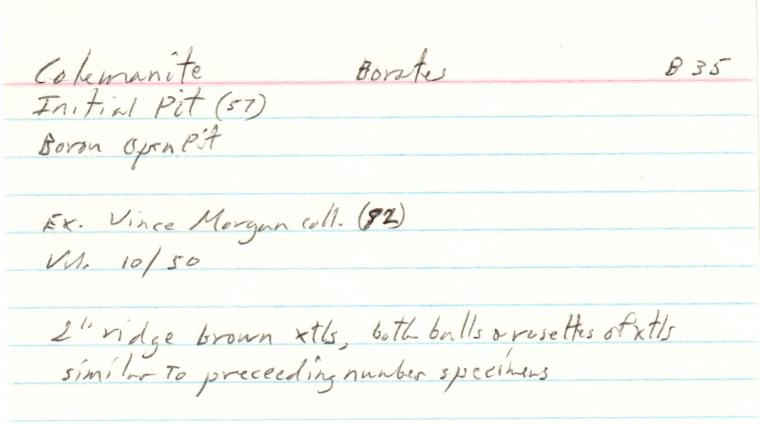 Colemanite Borates B 35
Initial Pit (57)
Boron Open Pit
Ex. Vince Morgan coll. (92)
Val. 10/50
2" ridge brown xtls, both balls & rosettes of xtls
similar to preceeding number specimens